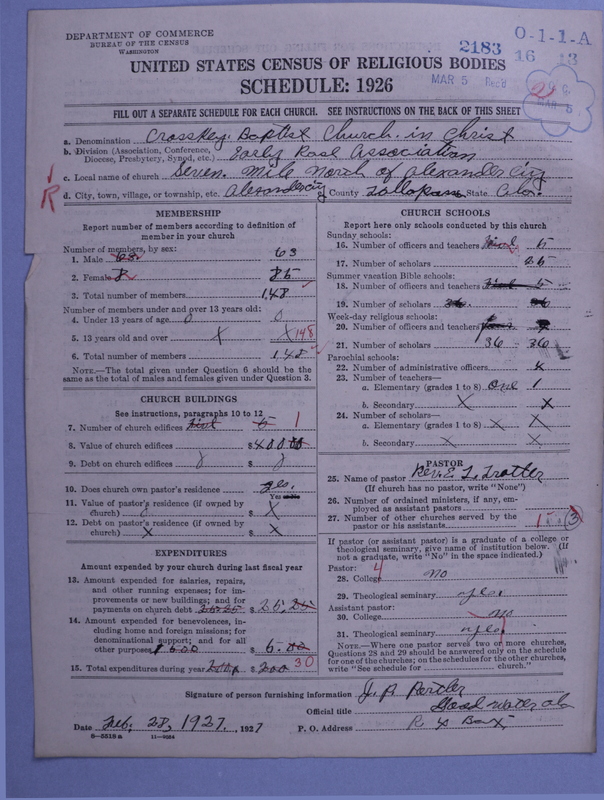 DEPARTMENT OF COMMERCE
BUREAU OF THE CENSUS
WASHINGTON
2183
O-1-1-A
16 13
MAR 5
UNITED STATES CENSUS OF RELIGIOUS BODIES
SCHEDULE: 1926
FILL OUT A SEPARATE SCHEDULE FOR EACH CHURCH. SEE INSTRUCTIONS ON THE BACK OF THIS SHEET
a. Denomination Crosskey. Baptist Church. in Christ
b. Division (Association, Conference, Diocese, Presbytery, Synod, etc.) Early Rose Association
c. Local name of church Seven. Mile North of Alexander City
R
d. City, town, village, or township, etc. Alexander City County State
MEMBERSHIP
Report number of members according to definition of
member in your church
Number of members, by sex:
1. Male 63
2. Female 85
3. Total number of members 148
Number of members under and over 13 years old:
4. Under 13 years of age 0 0
5. 13 years old and over X X 148
6. Total number of members 148
NOTE.—The total given under Question 6 should be the
same as the total of males and females given under Question 3.
CHURCH BUILDINGS
See instructions, paragraphs 10 to 12
7. Number of church edifices 1
8. Value of church edifices $ 400
9. Debt on church edifices $
10. Does church own pastor's residence yes.
Yes
11. Value of pastor's residence (if owned by
church) $ X
12. Debt on pastor's residence (if owned by
church) X $ X
EXPENDITURES
Amount expended by your church during last fiscal year
13. Amount expended for salaries, repairs,
and other running expenses; for im-
provements or new buildings; and for
payments on church debt $ 25.
14. Amount expended for benevolences, in-
cluding home and foreign missions; for
denominational support; and for all
other purposes $ 5.
15. Total expenditures during year $ 30
CHURCH SCHOOLS
Report here only schools conducted by this church
Sunday schools:
16. Number of officers and teachers 5
17. Number of scholars 25
Summer vacation Bible schools:
18. Number of officers and teachers
19. Number of scholars
Week-day religious schools:
20. Number of officers and teachers
21. Number of scholars 36 - 36
Parochial schools:
22. Number of administrative officers X
23. Number of teachers—
a. Elementary (grades 1 to 8) one 1
b. Secondary X X
24. Number of scholars—
a. Elementary (grades 1 to 8) X X
b. Secondary X X
PASTOR
25. Name of pastor Rev. E. L. Trotter
(If church has no pastor, write "None")
26. Number of ordained ministers, if any, em-
ployed as assistant pastors
27. Number of other churches served by the
pastor or his assistants 3
If pastor (or assistant pastor) is a graduate of a college or
theological seminary, give name of institution below. (If
not a graduate, write "No" in the space indicated.)
Pastor: 4
28. College no
29. Theological seminary
Assistant pastor:
30. College no
31. Theological seminary
NOTE.—Where one pastor serves two or more churches,
Questions 28 and 29 should be answered only on the schedule
for one of the churches; on the schedules for the other churches,
write "See schedule for church."
Signature of person furnishing information
Official title Good water ala
Date Feb. 28, 1927. , 1927 P. O. Address R. 4 Box
8—5519a 11—9264